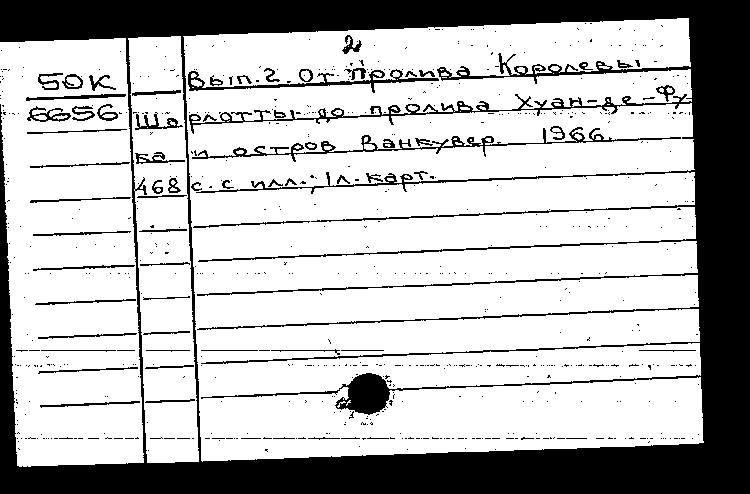 2
50К Вып.2. От пролива Королевы
6656 Шарлотты до пролива Хуан-де-Фу
ка и остров Ванкувер. 1966.
468 с. с илл.; 1л. карт.